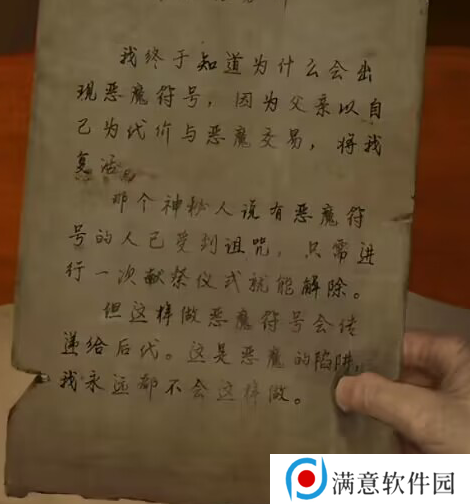 我终于知道为什么会出
现恶魔符号，因为父亲以自
己为代价与恶魔交易，将我
复活。
那个神秘人说有恶魔符
号的人已受到诅咒，只需进
行一次献祭仪式就能解除。
但这样做恶魔符号会传
递给后代。这是恶魔的陷阱，
我永远都不会这样做。
满意软件园